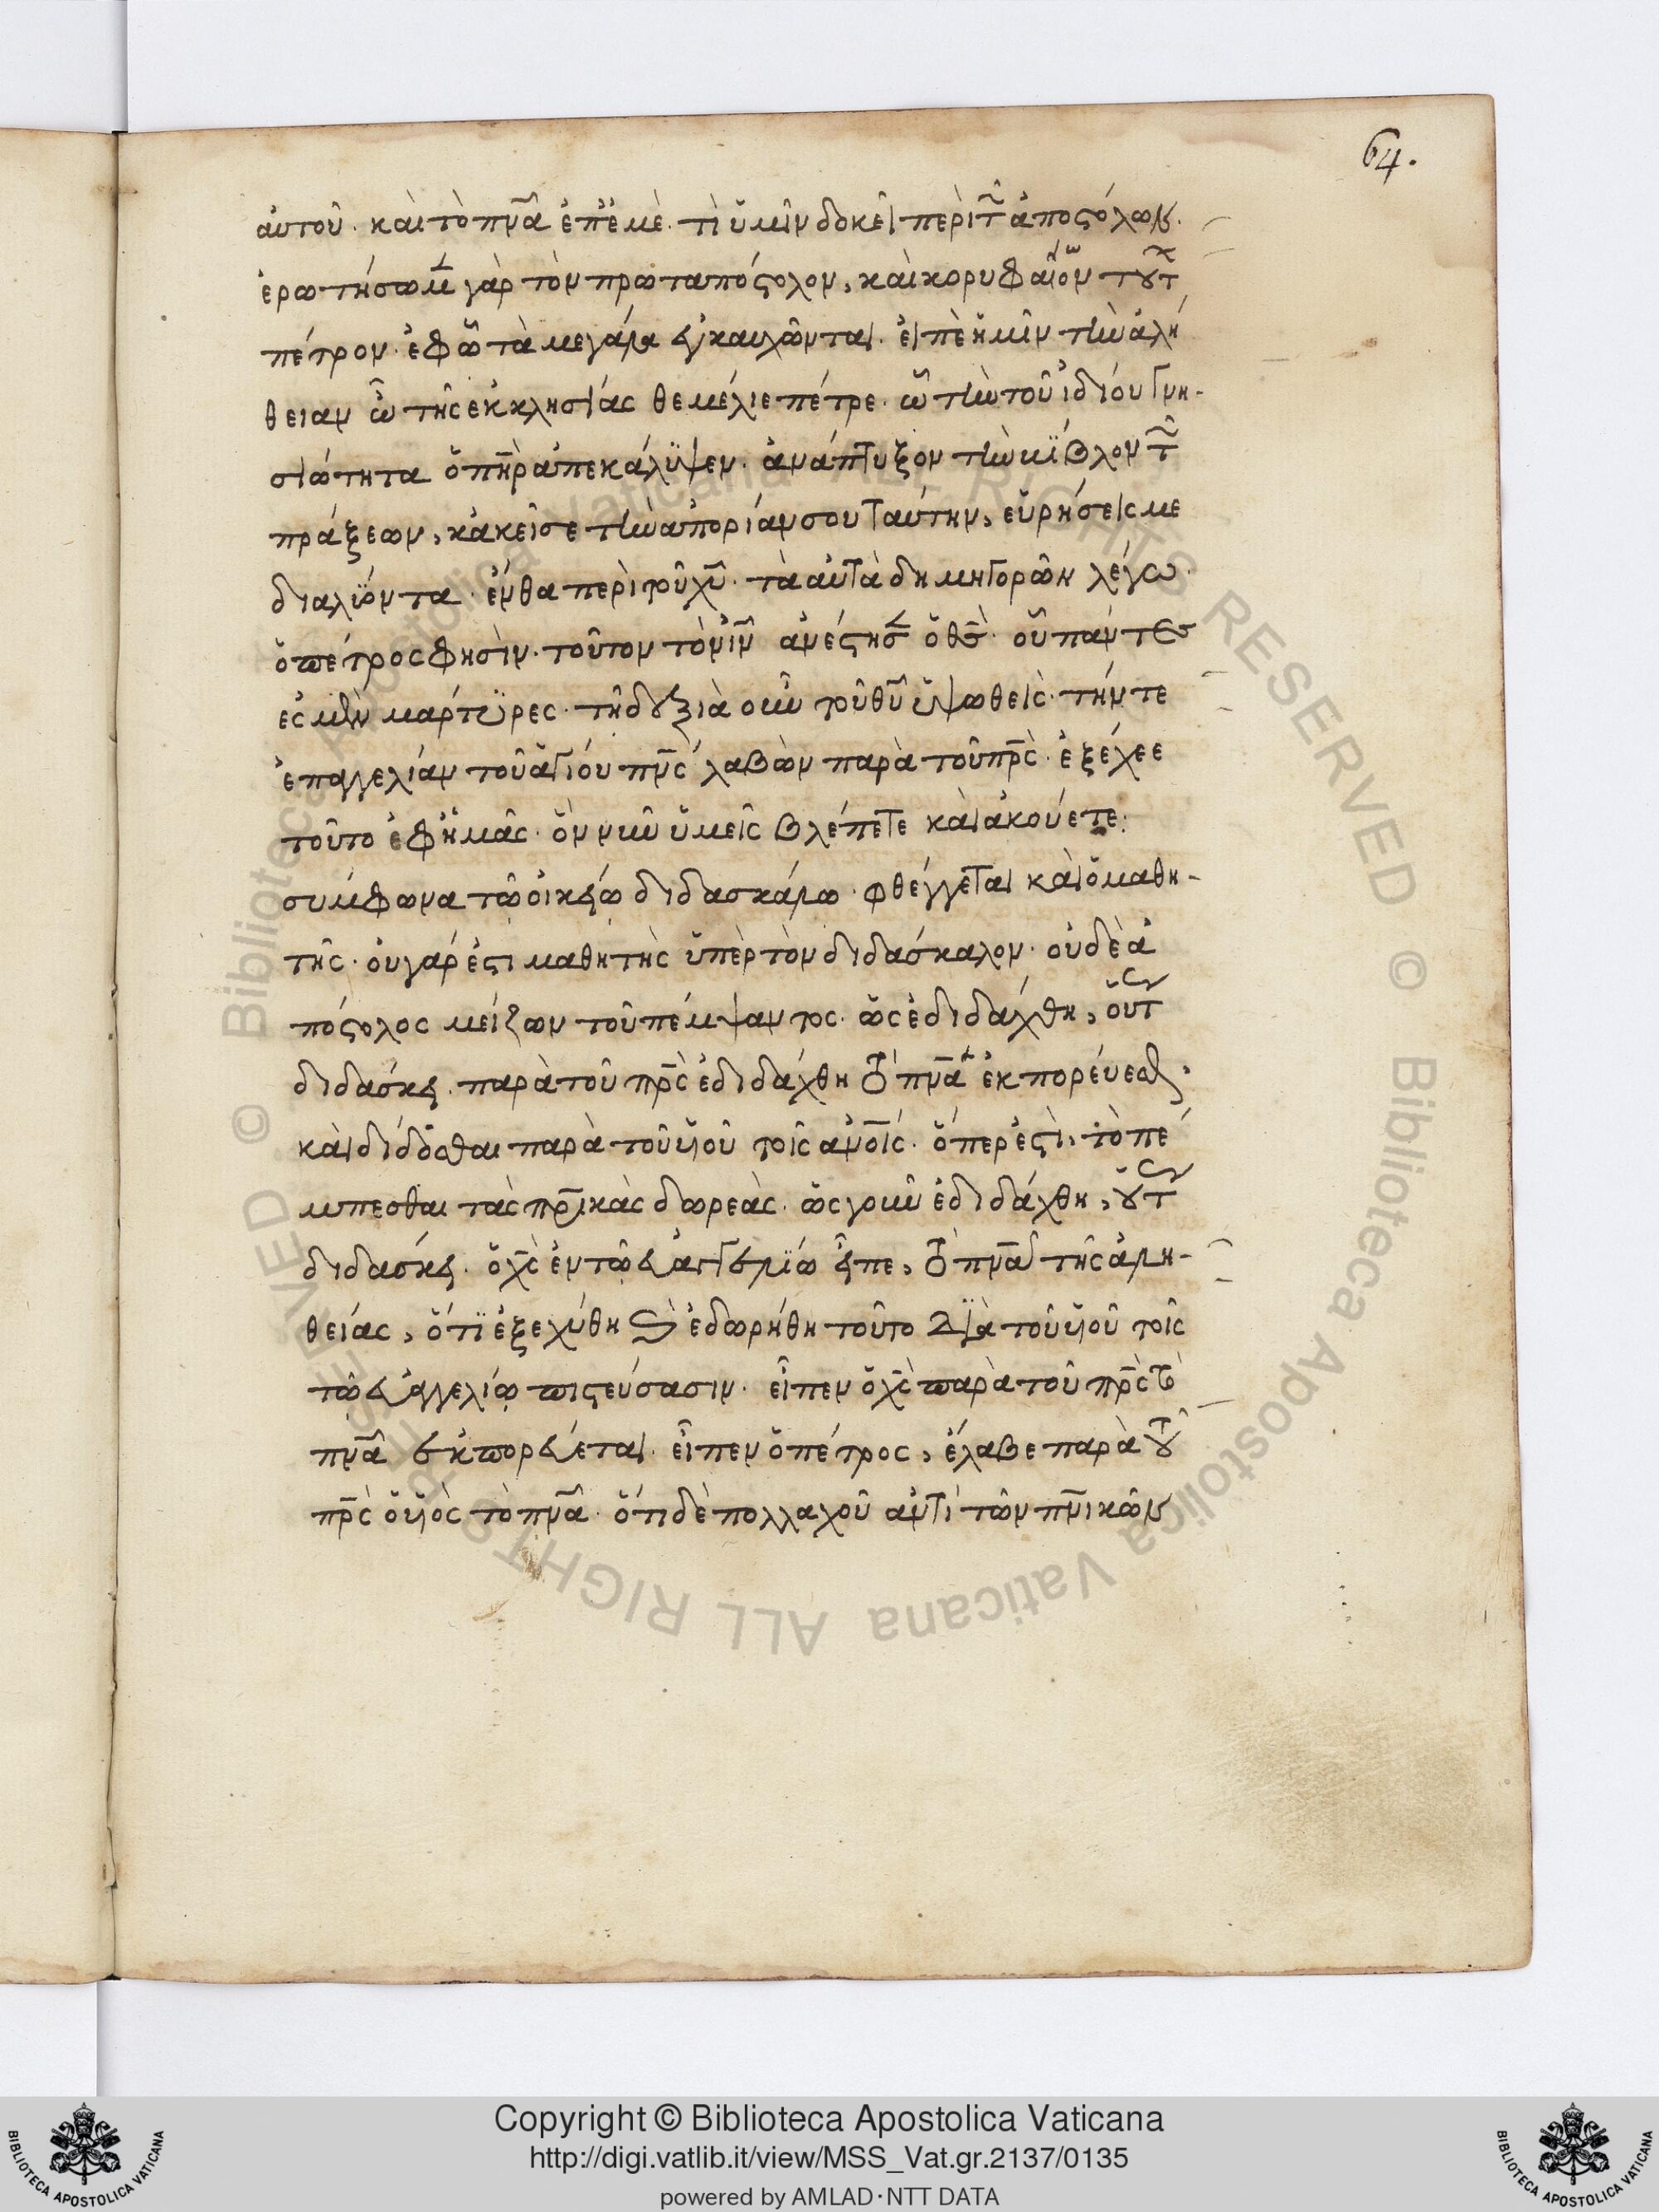 64.
αὐτοῦ. καὶ τὸ πνᾶ ἐπ' ἐμὲ. τί ὑμῖν δοκεῖ περὶ τῶν ἀποστόλων.
ἐρωτήσωμεν γὰρ τὸν πρωταπόστολον, καὶ κορυφαῖον
πέτρον. ἐφ' ᾧ τὰ μεγάλα ἐγκαυχῶνται. εἰπὲ ἡμῖν τὴν ἀλή
θειαν ὦ τῆς ἐκκλησίας θεμέλιε πέτρε. ὦ τὴν τοῦ ἰδίου γνη-
σιότητα ὁ πὴρ ἀπεκάλυψεν. ἀνάπτυξον τὴν βίβλον τῶν
πράξεων, κἀκεῖσε τὴν ἀπορίαν σου ταύτην, εὑρήσεις με
διαλύοντα. ἔνθα περὶ τοῦ χῦ. τὰ αὐτὰ δημηγορῶν λέγω.
ὁ πέτρος φησὶν. τοῦτον τὸν ἰν ἀνέστησεν ὁ θς. οὗ πάντες
ἐσμὲν μάρτυρες. τῇ δεξιᾷ οὖν τοῦ θῦ ὑψωθεὶς. τήν τε
ἐπαγγελίαν τοῦ ἁγίου πνς λαβὼν παρὰ τοῦ πρς. ἐξέχεε
τοῦτο ἐφ' ἡμᾶς. ὃν νῦν ὑμεῖς βλέπετε καὶ ἀκούετε:
σύμφωνα τῷ οἰκείῳ διδασκάλῳ. φθέγγεται καὶ ὁ μαθη-
τής. οὐ γάρ ἐστι μαθητὴς ὑπὲρ τὸν διδάσκαλον. οὐδὲ ἀ
πόστολος μείζων τοῦ πέμψαντος. ὡς ἐδιδάχθη, οὕτως
διδάσκει. παρὰ τοῦ πρς ἐδιδάχθη τὸ πνᾶ ἐκπορεύεσθαι.
καὶ δίδοσθαι παρὰ τοῦ υἱοῦ τοῖς ανοις. ὅπερ ἐστὶ, τὸ πέ
μπεσθαι τὰς πνικὰς δωρεὰς. ὡς γοῦν ἐδιδάχθη, οὕτως
διδάσκει. ὁ χς ἐν τῷ εὐαγγελίῳ εἶπε, τὸ πνᾶ τῆς ἀλη-
θείας, ὅτι ἐξεχύθη καὶ ἐδωρήθη τοῦτο διὰ τοῦ υἱοῦ τοῖς
τῷ εὐαγγελίῳ πιστεύσασιν. εἶπεν ὁ χς παρὰ τοῦ πρς τὸ
πνᾶ ἐκπορεύεται. εἶπεν ὁ πέτρος, ἔλαβε παρὰ τοῦ
πρς ὁ υἱὸς τὸ πνᾶ. ὅτι δὲ πολλαχοῦ ἀντὶ τῶν πνικῶν
Copyright © Biblioteca Apostolica Vaticana
http://digi.vatlib.it/view/MSS_Vat.gr.2137/0135
powered by AMLAD·NTT DATA